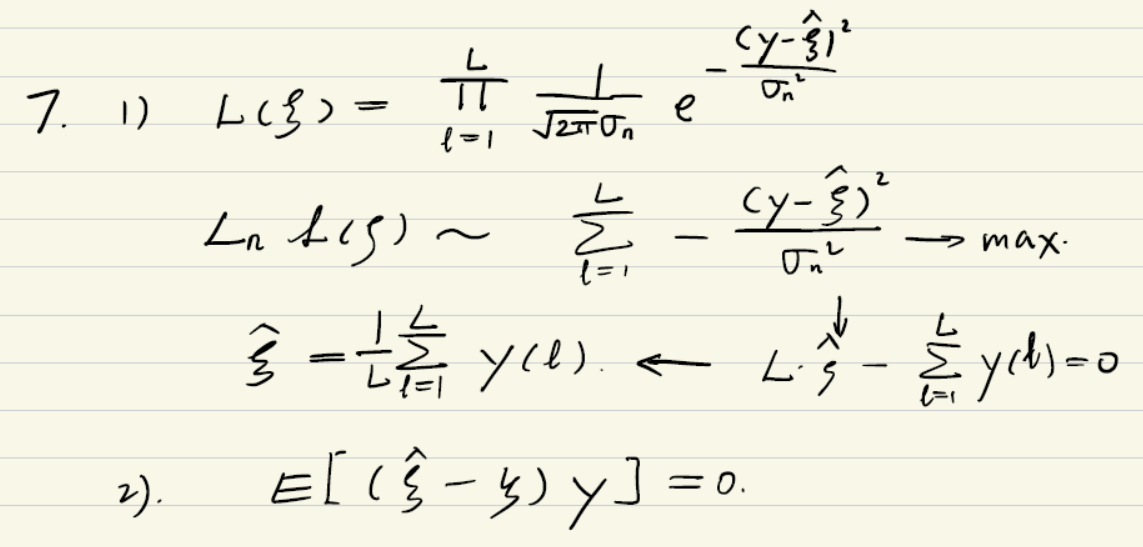 7. 1) L(ξ) = ∏_{l=1}^{L} \frac{1}{\sqrt{2π}σ_n} e^{-\frac{(y-\hat{ξ})^2}{σ_n^2}}
Ln L(ξ) ~ ∑_{l=1}^{L} - \frac{(y-\hat{ξ})^2}{σ_n^2} → max.
\hat{ξ} = \frac{1}{L} ∑_{l=1}^{L} y(l). ← L·\hat{ξ} - ∑_{l=1}^{L} y(l) = 0
2). E[(\hat{ξ} - ξ) y] = 0.